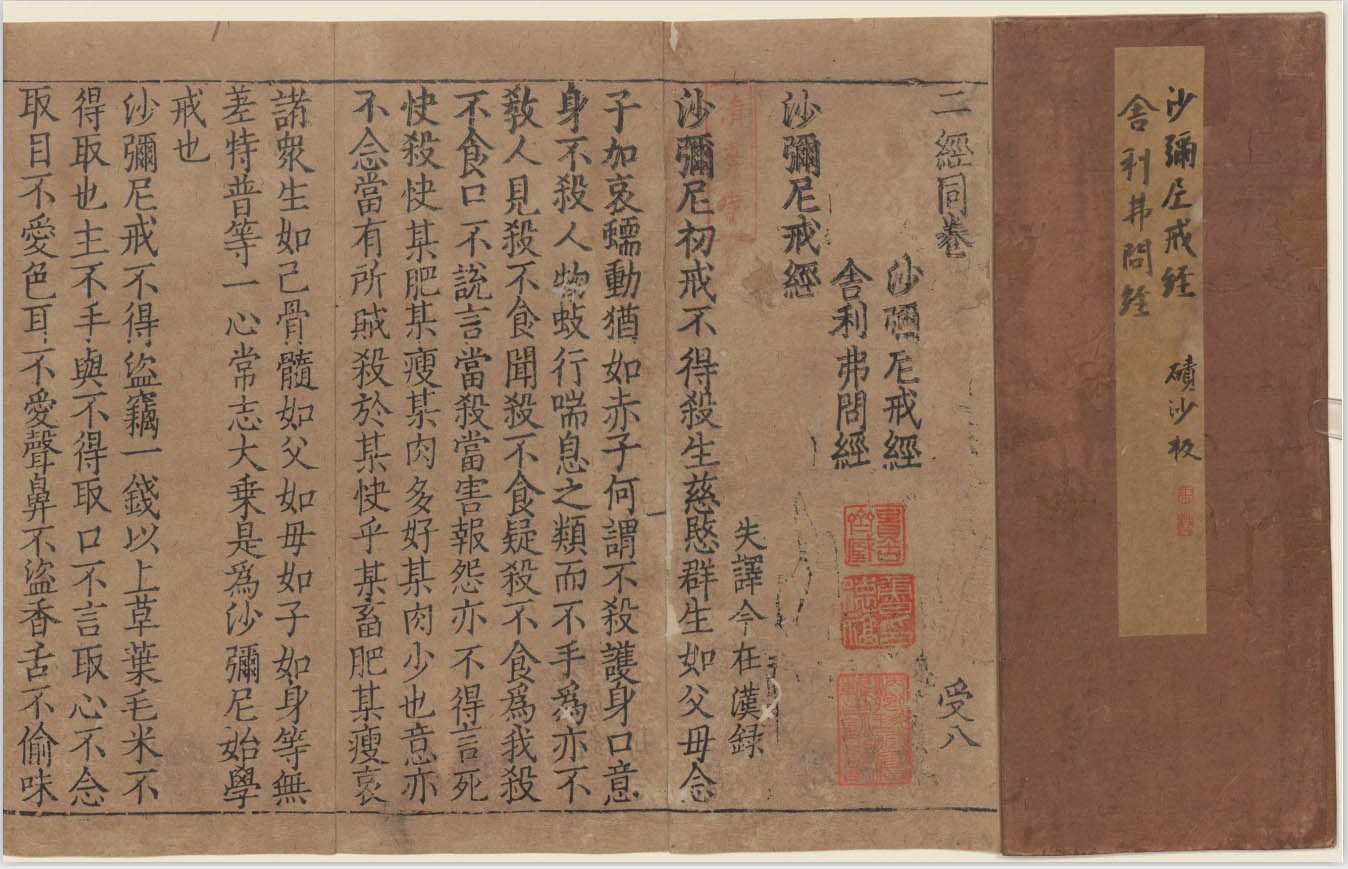 沙彌尼戒経 磧沙板
舎利弗問経
二經同卷 受八
沙彌尼戒經
舎利弗問經
沙彌尼戒經
失譯今在漢録
沙彌尼初戒不得殺生慈愍群生如父毋念
子加哀蠕動猶如赤子何謂不殺護身口意
身不殺人物蚑行喘息之類而不手爲亦不
敎人見殺不食聞殺不食疑殺不食爲我殺
不食口不說言當殺當害報怨亦不得言死
快殺快某肥某瘦某肉多好某肉少也意亦
不念當有所賊殺於某快乎某畜肥某瘦哀
諸衆生如己骨髓如父如毋如子如身等無
差特普等一心常志大乗是爲沙彌尼始學
戒也
沙彌尼戒不得盜竊一錢以上草葉毛米不
得取也主不手與不得取口不言取心不念
取目不愛色耳不愛聲鼻不盜香舌不偷味